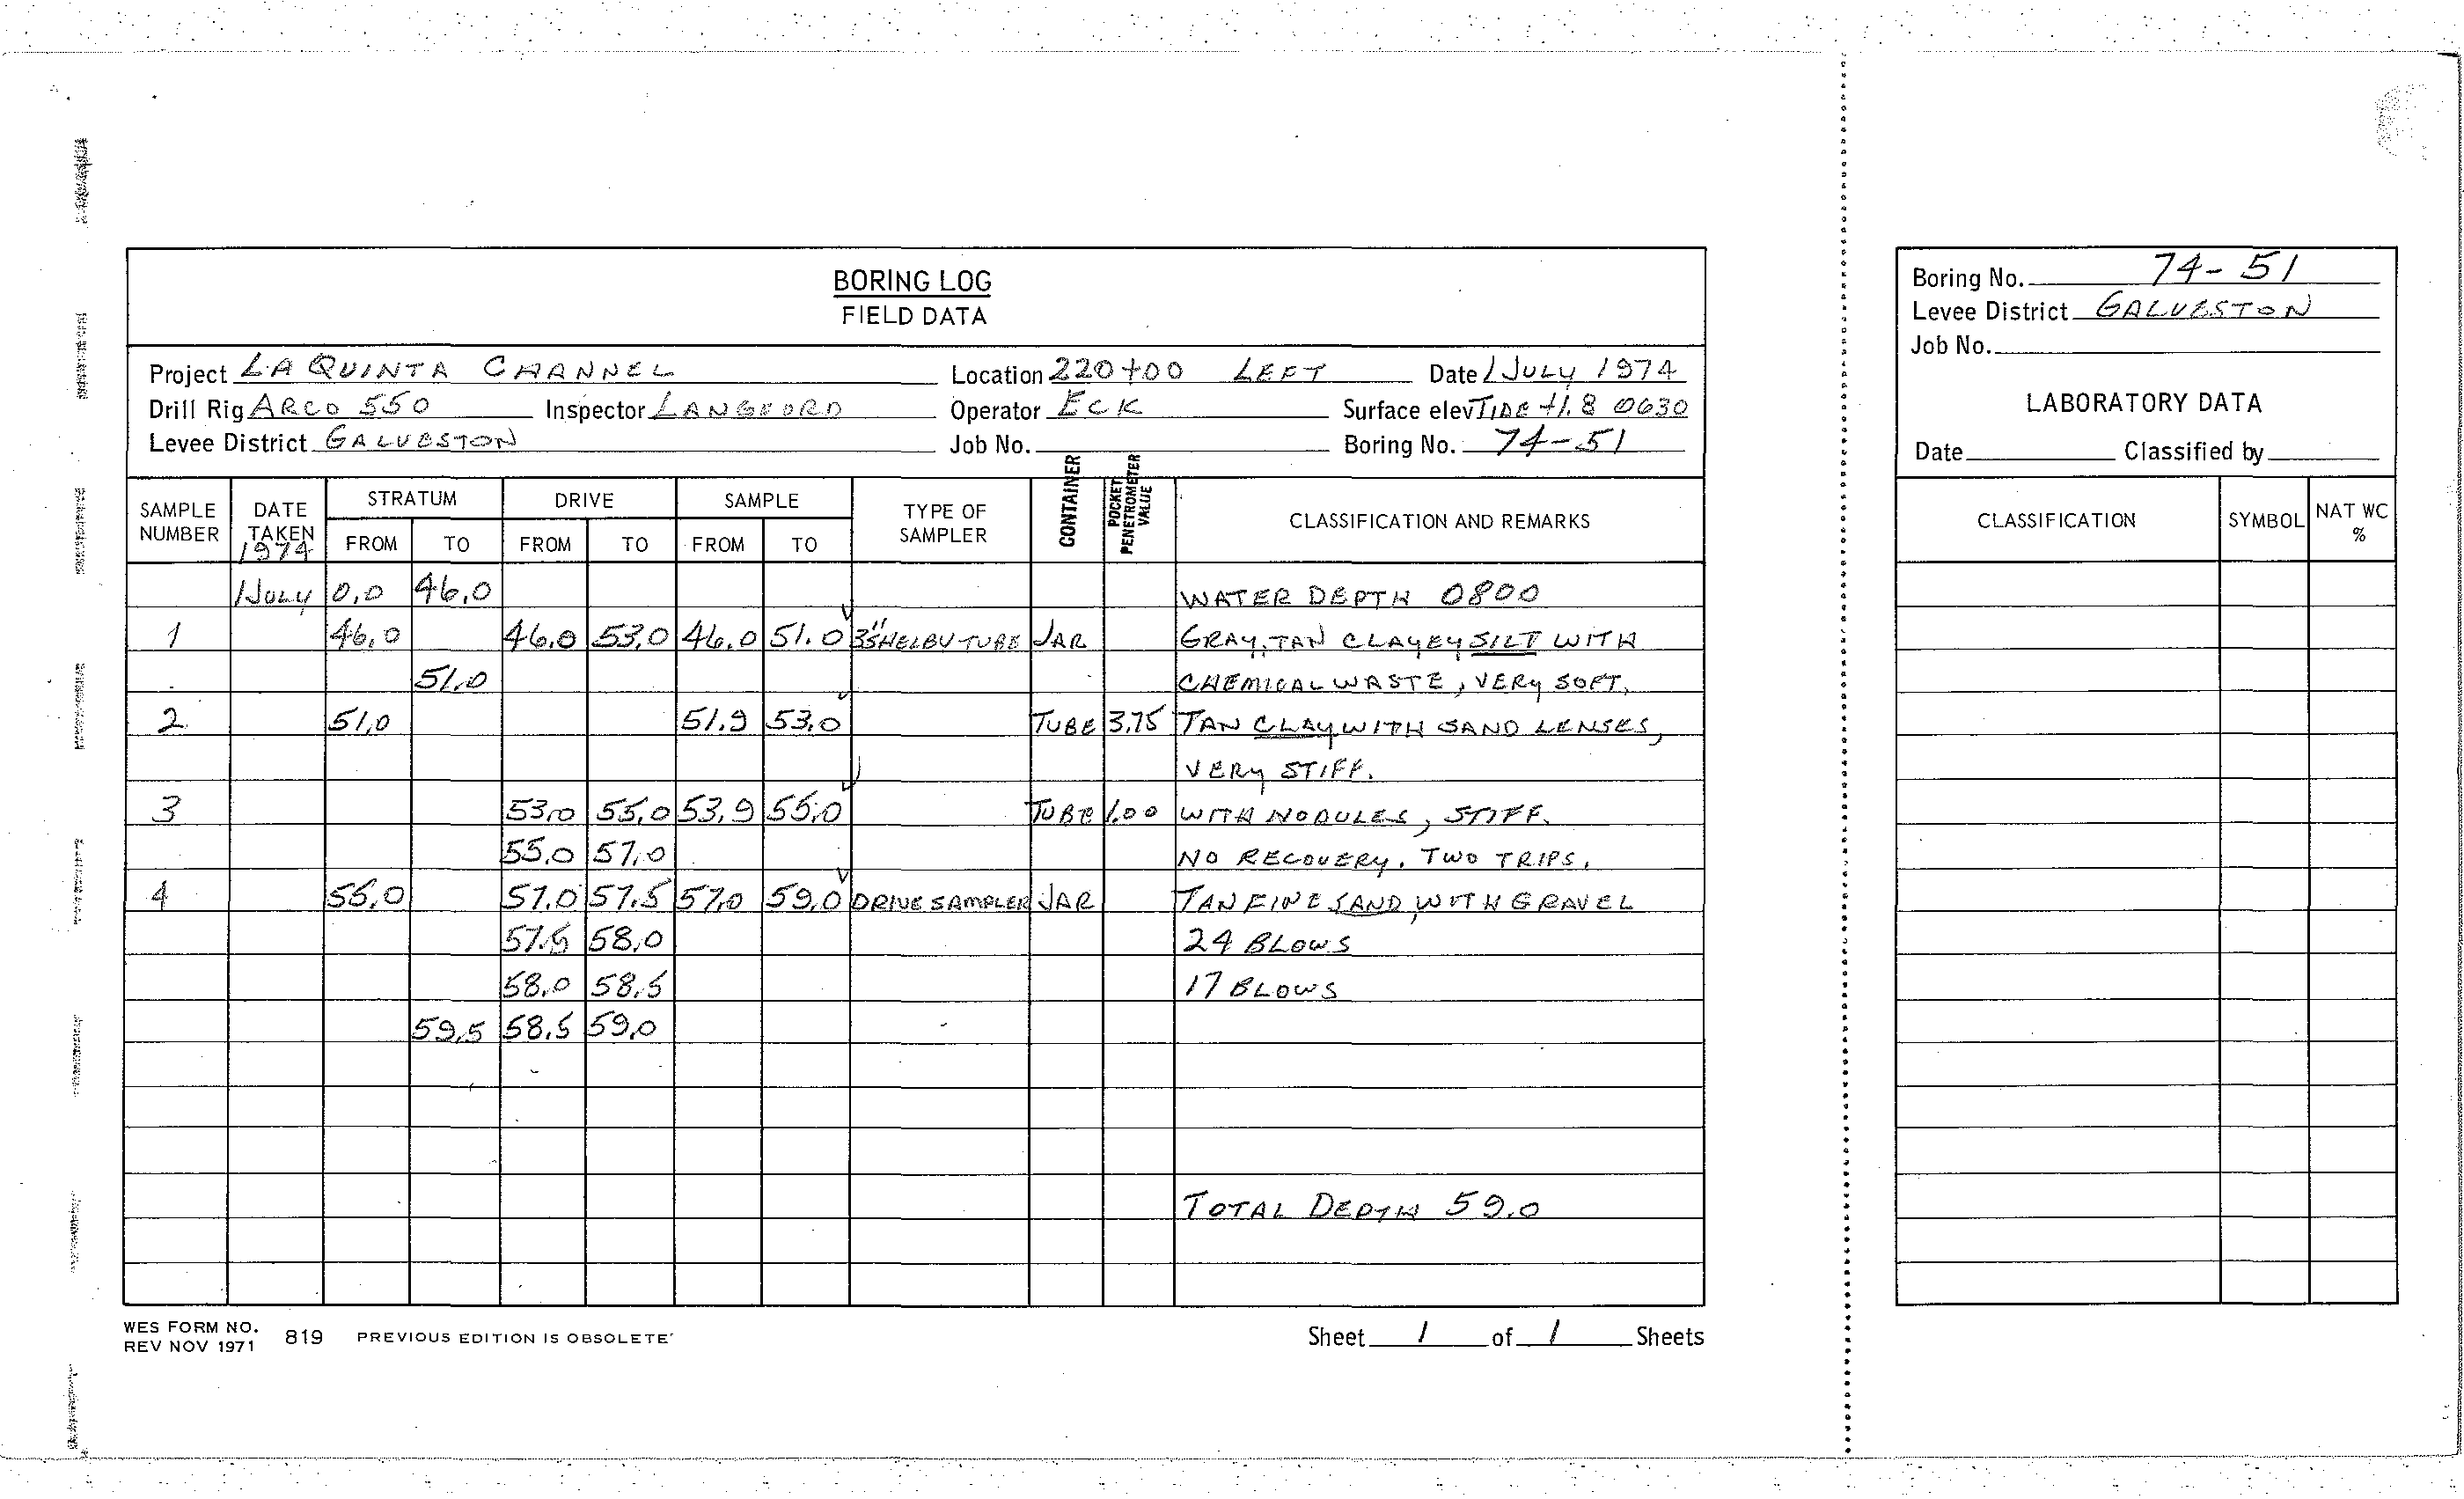 BORING LOG
FIELD DATA
Project LA QUINTA CHANNEL Location 220+00 LEFT Date 1 JULY 1974
Drill Rig ARCO 550 Inspector LANGFORD Operator ECK Surface elev TIDE +1.8 0630
Levee District GALVESTON Job No. Boring No. 74-51
SAMPLE NUMBER DATE TAKEN 1974 STRATUM FROM TO DRIVE FROM TO SAMPLE FROM TO TYPE OF SAMPLER CONTAINER POCKET PENETROMETER VALUE CLASSIFICATION AND REMARKS
1 JULY 0.0 46.0 WATER DEPTH 0800
1 46.0 46.0 53.0 46.0 51.0 3" SHELBY TUBE JAR GRAY, TAN CLAYEY SILT WITH
51.0 CHEMICAL WASTE, VERY SOFT.
2 51.0 51.9 53.0 TUBE 3.75 TAN CLAY WITH SAND LENSES,
VERY STIFF.
3 53.0 55.0 53.9 55.0 TUBE 1.00 WITH NODULES, STIFF.
55.0 57.0 NO RECOVERY. TWO TRIPS.
4 55.0 57.0 57.5 57.0 59.0 DRIVE SAMPLER JAR TAN FINE SAND, WITH GRAVEL
57.5 58.0 24 BLOWS
58.0 58.5 17 BLOWS
59.5 58.5 59.0
TOTAL DEPTH 59.0
WES FORM NO. 819 PREVIOUS EDITION IS OBSOLETE
REV NOV 1971
Sheet 1 of 1 Sheets
Boring No. 74-51
Levee District GALVESTON
Job No.
LABORATORY DATA
Date Classified by
CLASSIFICATION SYMBOL NAT WC %